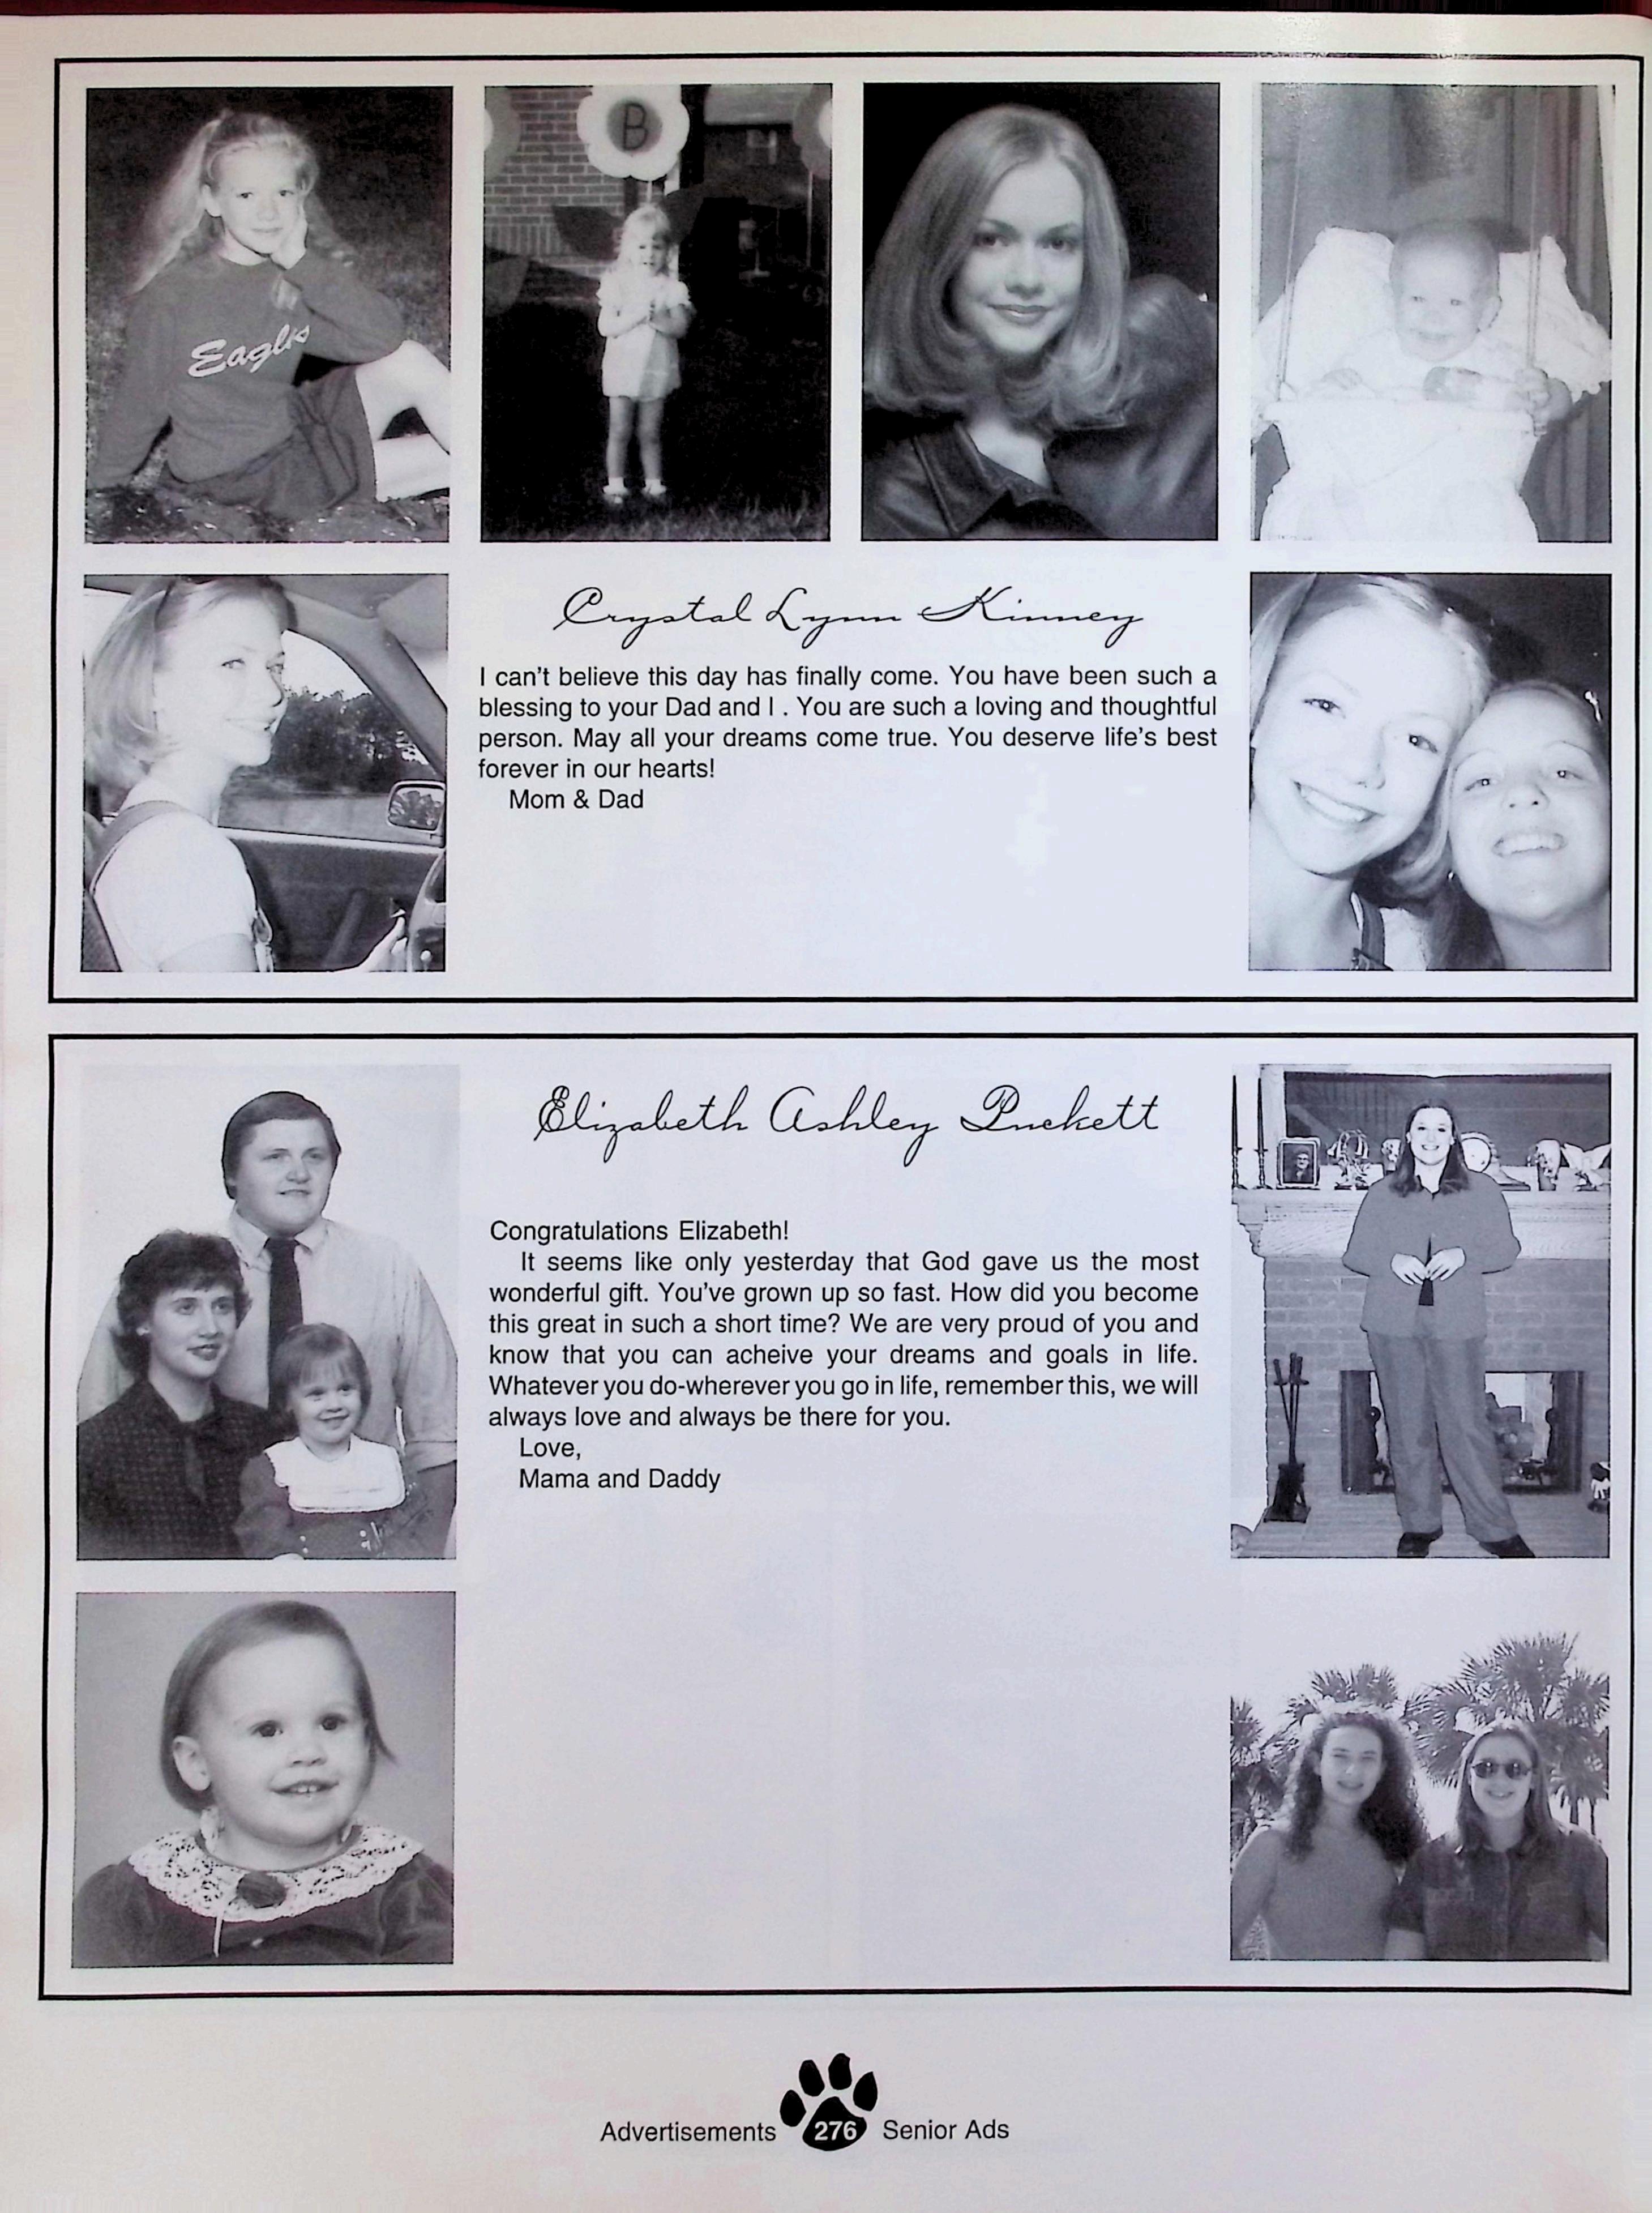 B
Eagles
Crystal Lynn Kinney
I can't believe this day has finally come. You have been such a
blessing to your Dad and I . You are such a loving and thoughtful
person. May all your dreams come true. You deserve life's best
forever in our hearts!
Mom & Dad
Elizabeth Ashley Puckett
Congratulations Elizabeth!
It seems like only yesterday that God gave us the most
wonderful gift. You've grown up so fast. How did you become
this great in such a short time? We are very proud of you and
know that you can acheive your dreams and goals in life.
Whatever you do-wherever you go in life, remember this, we will
always love and always be there for you.
Love,
Mama and Daddy
Advertisements 276 Senior Ads